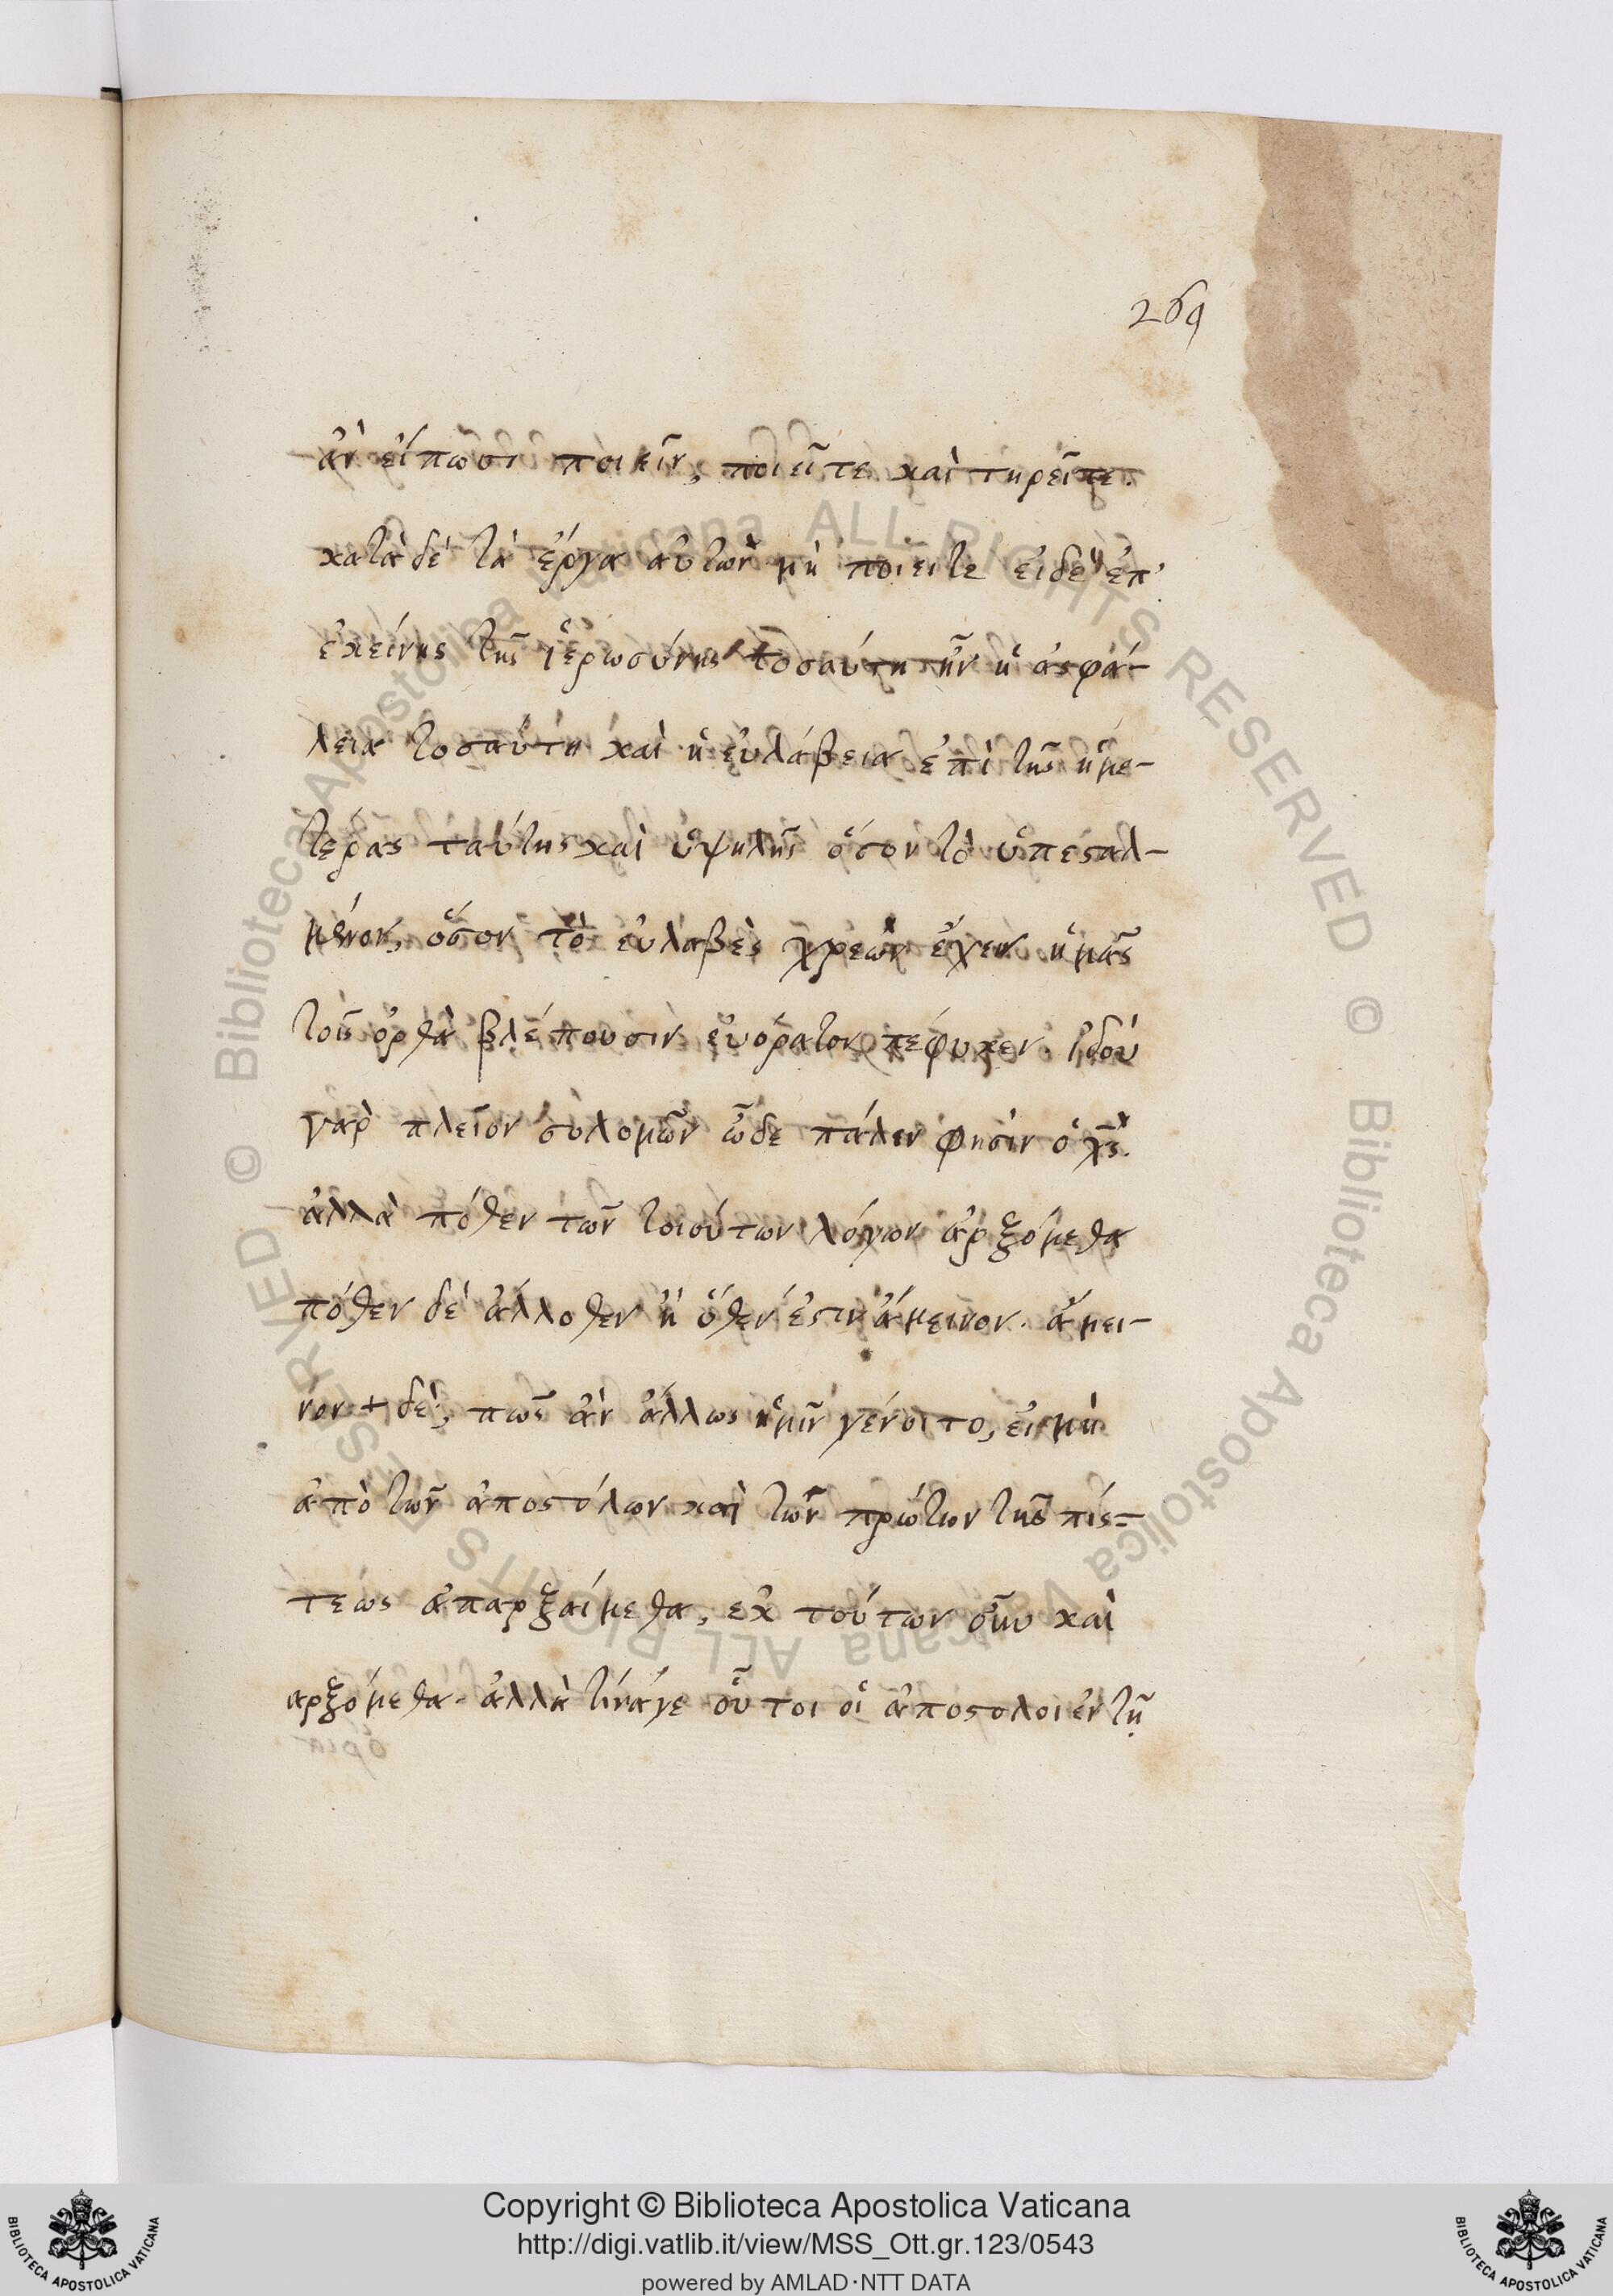 269
ἂν εἴπωσι ποιεῖν, ποιεῖτε καὶ τηρεῖτε.
κατὰ δὲ τὰ ἔργα αὐτῶν μὴ ποιεῖτε εἰδὲ ἐπ'
ἐκείνης τῆς ἱερωσύνης τοσαύτη ἦν ἡ ἀσφά-
λεια τοσαύτη καὶ ἡ εὐλάβεια ἐπὶ τῆς ἡμε-
τέρας ταύτης καὶ ὑψηλῆς ὅσον τὸ ὑπεσταλ-
μένον, ὅσον τὸ εὐλαβὲς χρεὼν ἔχειν ἡμᾶς
τοῖς ὀρθὰ βλέπουσιν εὐόρατον πέφυκεν. ἰδού
γὰρ πλεῖον σολομῶν ὧδε πάλιν φησὶν ὁ χς.
ἀλλὰ πόθεν τῶν τοιούτων λόγων ἀρξόμεθα
πόθεν δὲ ἄλλοθεν ἢ ὅθεν ἐστιν ἄμεινον. ἄμει-
νον + δὲ, πῶς ἂν ἄλλως ἡμῖν γένοιτο, εἰ μὴ
ἀπὸ τῶν ἀποστόλων καὶ τῶν πρώτων τῆς πίσ=
τεως ἀπαρξαίμεθα, ἐκ τούτων οὖν καὶ
αρξόμεθα. ἀλλὰ τίνάγε οὗτοι οἱ ἀποστολοι ἐν τῇ
Copyright © Biblioteca Apostolica Vaticana
http://digi.vatlib.it/view/MSS_Ott.gr.123/0543
powered by AMLAD·NTT DATA
BIBLIOTECA APOSTOLICA VATICANA
BIBLIOTECA APOSTOLICA VATICANA
© Biblioteca Apostolica Vaticana ALL RIGHTS RESERVED © Biblioteca Apostolica Vaticana ALL RIGHTS RESERVED